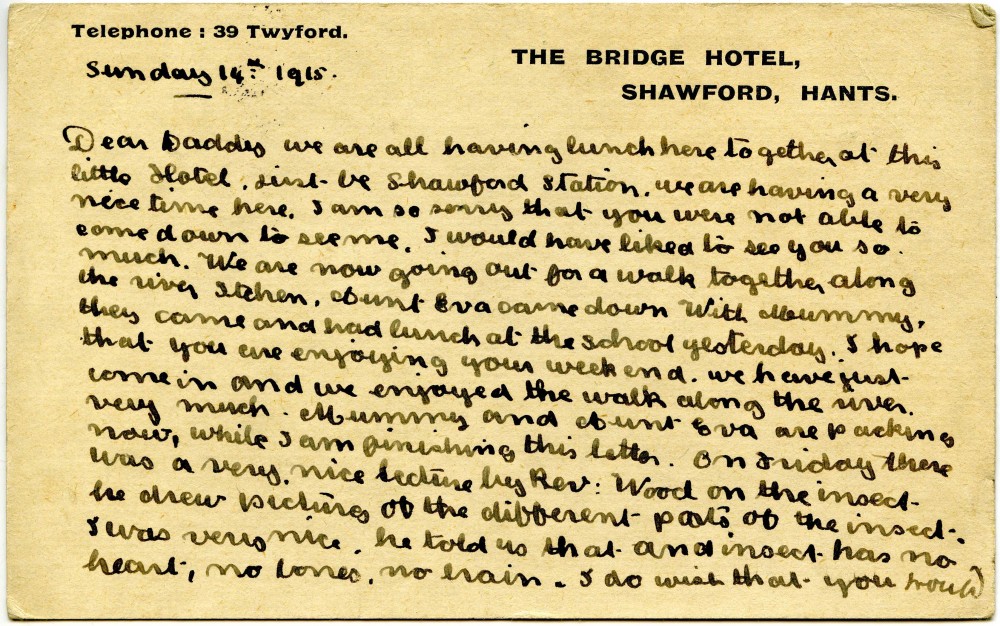 Telephone : 39 Twyford.
Sunday 14th 1915.
THE BRIDGE HOTEL,
SHAWFORD, HANTS.
Dear Daddy we are all having lunch here together, at this
little Hotel, just be Shawford Station. we are having a very
nice time here. I am so sorry that you were not able to
come down to see me. I would have liked to see you so.
much. We are now going out for a walk together, along
the river Itchen. Aunt Eva came down with Mummy,
they came and had lunch at the school yesterday. I hope
that you are enjoying your week end. we have just
come in and we enjoyed the walk along the river.
very much. Mummy and Aunt Eva are packing
now, while I am finishing this letter. On Friday there
was a very, nice lecture by Rev: Wood on the insect.
he drew pictures of the different parts of the insect.
I was very nice. he told us that and insect has no
heart, no bones, no brain. I do wish that you would